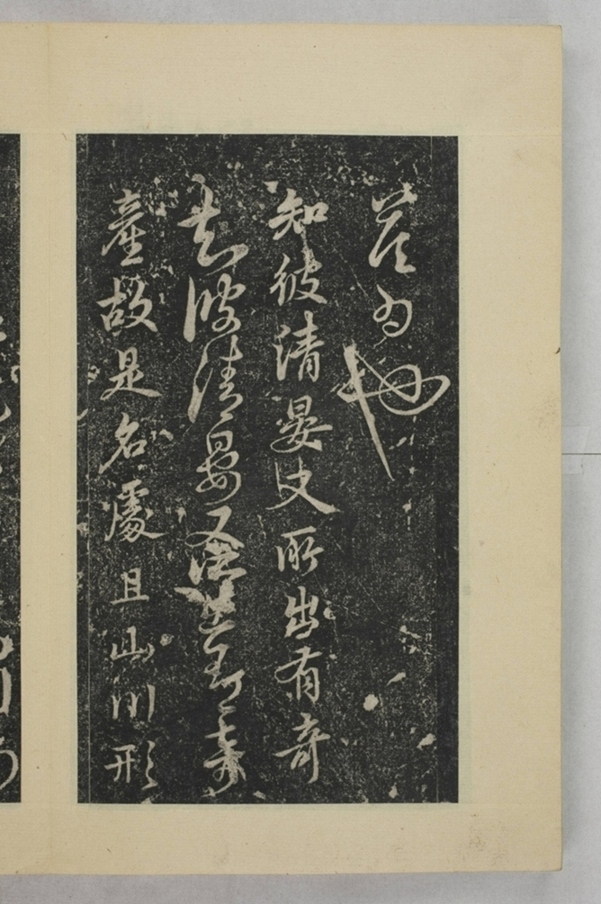 為也
知彼清晏又所出有奇
知彼清晏又所出有奇
產故是名處且山川形